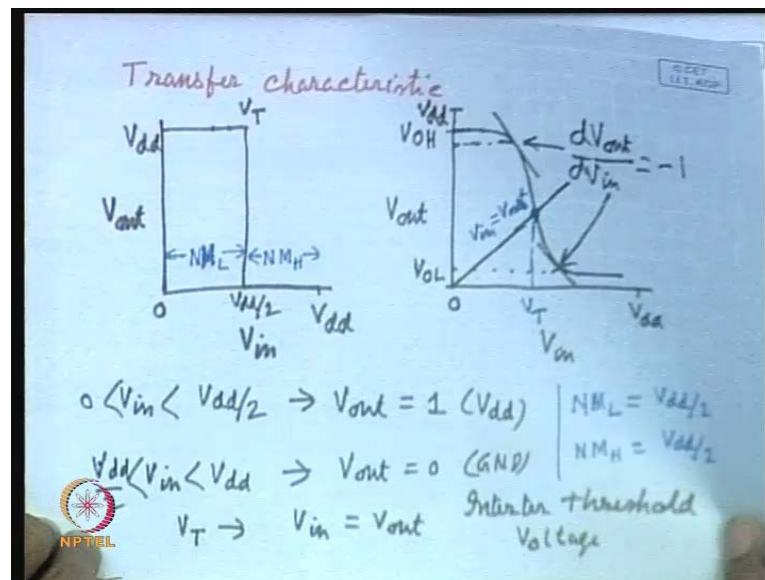 Transfer characteristic
© CET
I.I.T. KGP
Vdd
VT
Vout
NML
NMH
0
Vdd/2
Vdd
Vin
Vdd
VOH
Vout
VOL
Vin = Vout
dVout
dVin
= -1
0
VT
Vdd
Vin
0 < Vin < Vdd/2 → Vout = 1 (Vdd)
NML = Vdd/2
Vdd/2 < Vin < Vdd → Vout = 0 (GND)
NMH = Vdd/2
VT → Vin = Vout
Inverter threshold
Voltage
NPTEL